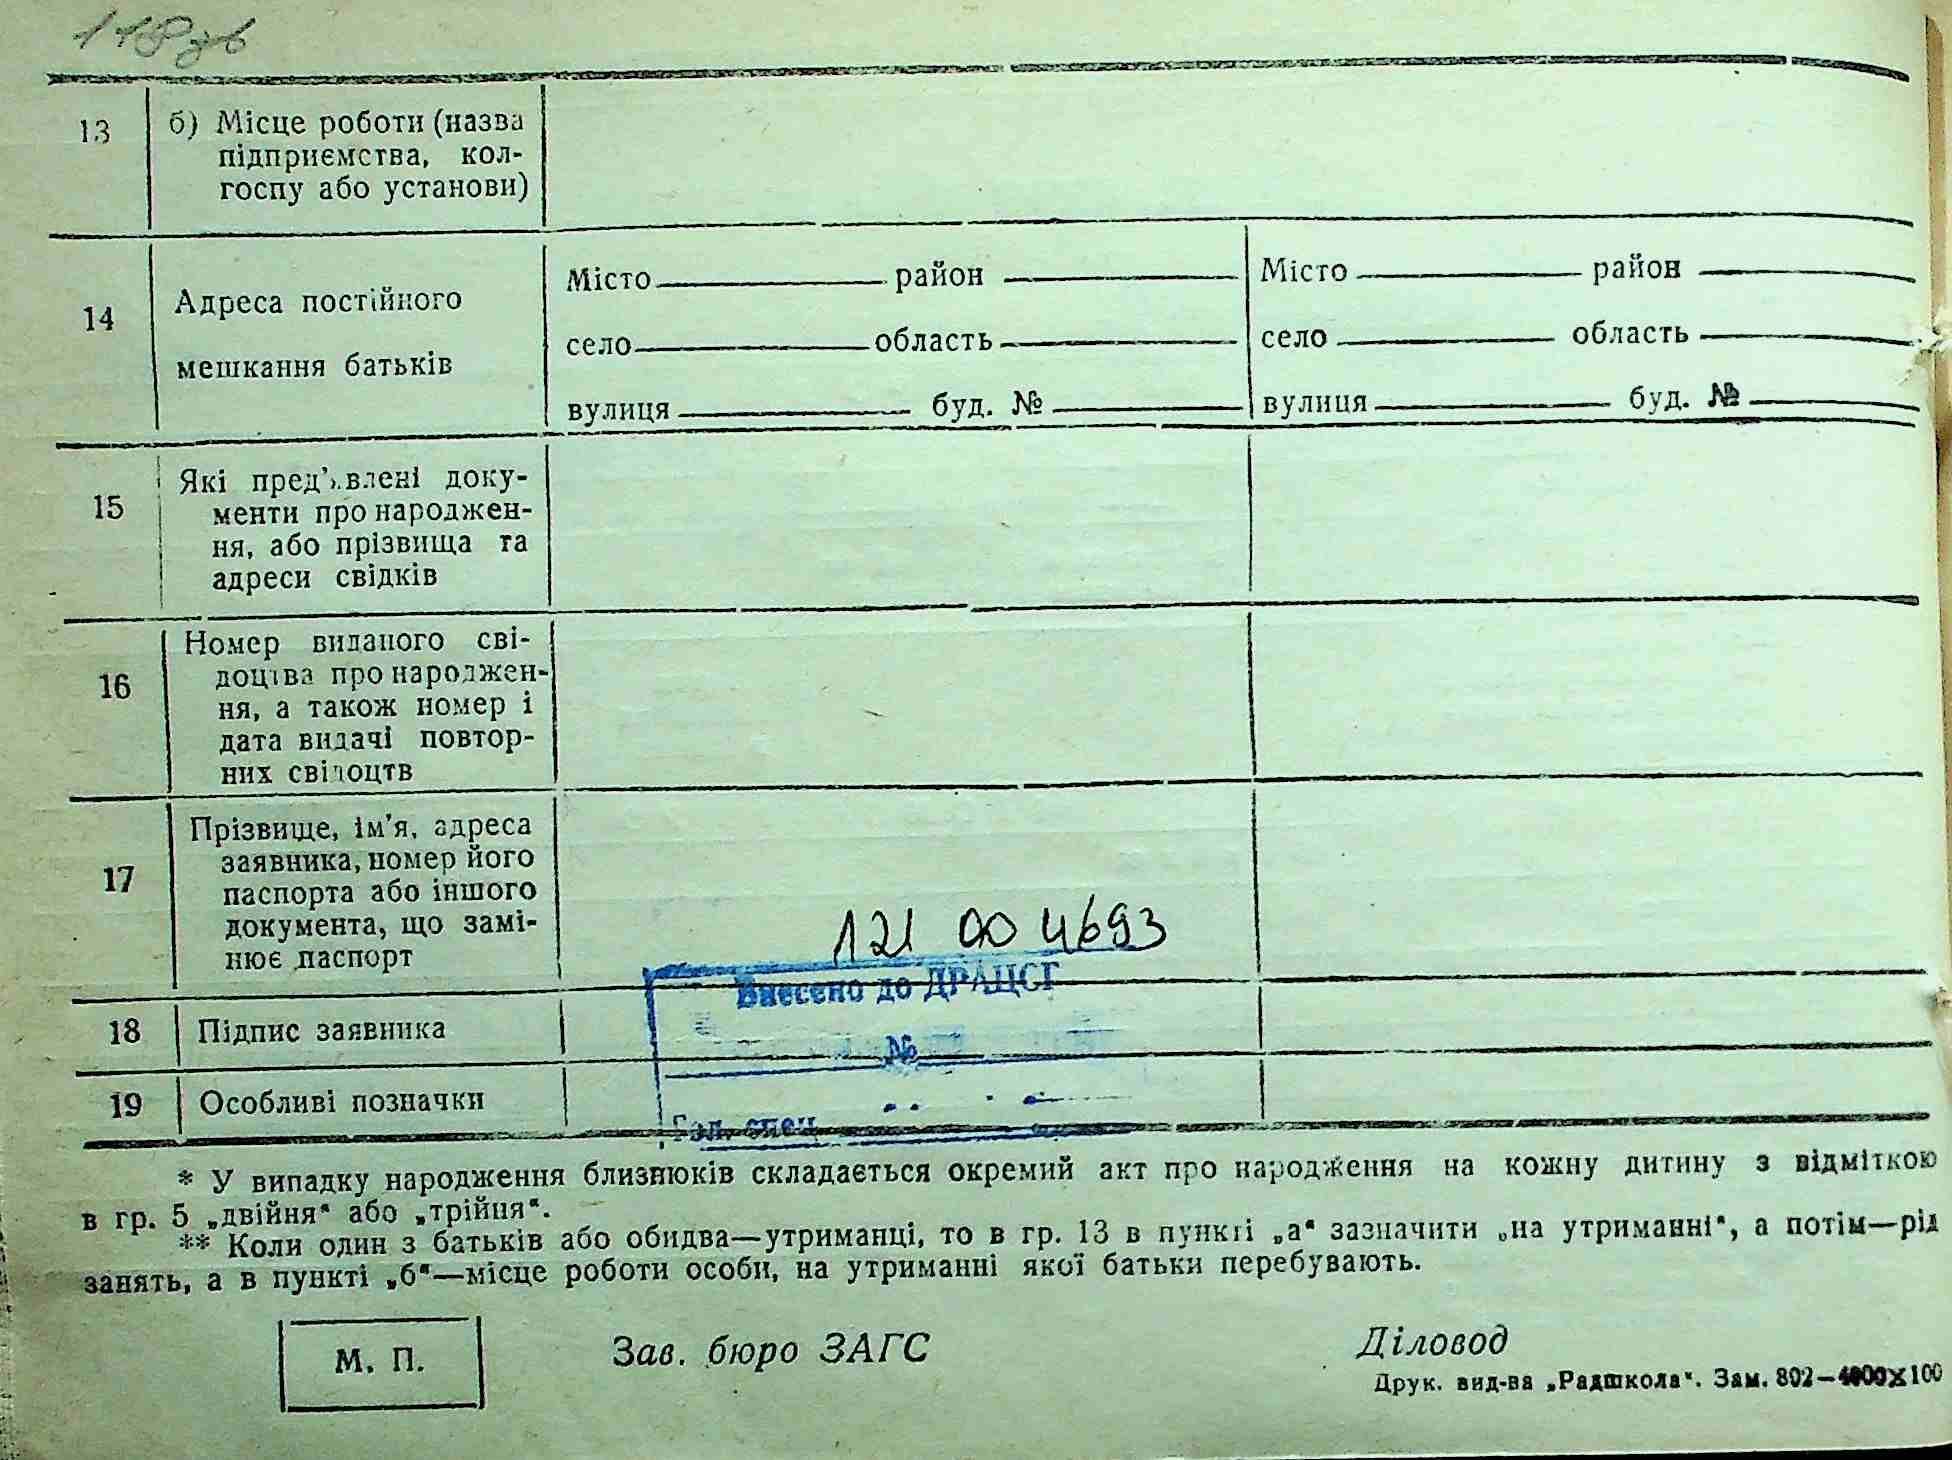 118 зв
13
б) Місце роботи (назва
підприємства, кол-
госпу або установи)
14
Адреса постійного
мешкання батьків
Місто район
село область
вулиця буд. №
Місто район
село область
вулиця буд. №
15
Які пред'явлені доку-
менти про народжен-
ня, або прізвища та
адреси свідків
16
Номер виданого сві-
доцтва про народжен-
ня, а також номер і
дата видачі повтор-
них свідоцтв
17
Прізвище, ім'я, адреса
заявника, номер його
паспорта або іншого
документа, що замі-
нює паспорт
121 00 4693
Внесено до ДРАЦСГ
№
Гол. спец.
18
Підпис заявника
19
Особливі позначки
* У випадку народження близнюків складається окремий акт про народження на кожну дитину з відміткою
в гр. 5 „двійня“ або „трійня“.
** Коли один з батьків або обидва—утриманці, то в гр. 13 в пункті „а“ зазначити „на утриманні“, а потім—рід
занять, а в пункті „б“—місце роботи особи, на утриманні якої батьки перебувають.
М. П.
Зав. бюро ЗАГС
Діловод
Друк. вид-ва „Радшкола“. Зам. 802—4000×100